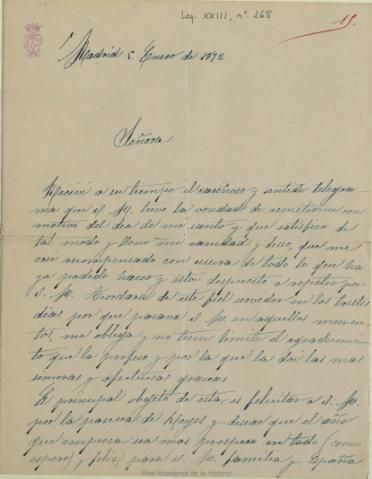 Leg. XXIII, nº 268
15.
Madrid 5 Enero de 1892
Señora
Recibí a su tiempo el cariñoso y sentido telegra-
ma que S. M. tuvo la vondad de remitirme con
motivo del dia de mi santo y que satisfizo de
tal modo y lleno mi vanidad y deseo, que me
creo recompensado con usura de todo lo que ha-
ya podido hacer y estoy dispuesto a repetir por
S. M. Acordarse de este fiel servidor en los tristes
dias por que pasava S. M. en aquellos momen-
tos, me obliga y no tiene limite el agradecimien-
to que la profeso y por la que la doi las mas
sinceras y afectuosas gracias
El principal objeto de esta, es felicitar a S. M.
por la pascua de Reyes y desear que el año
que empieza sea mas prospero en todo (como
espero) y feliz, para S. M. familia y España
Real Academia de la Historia